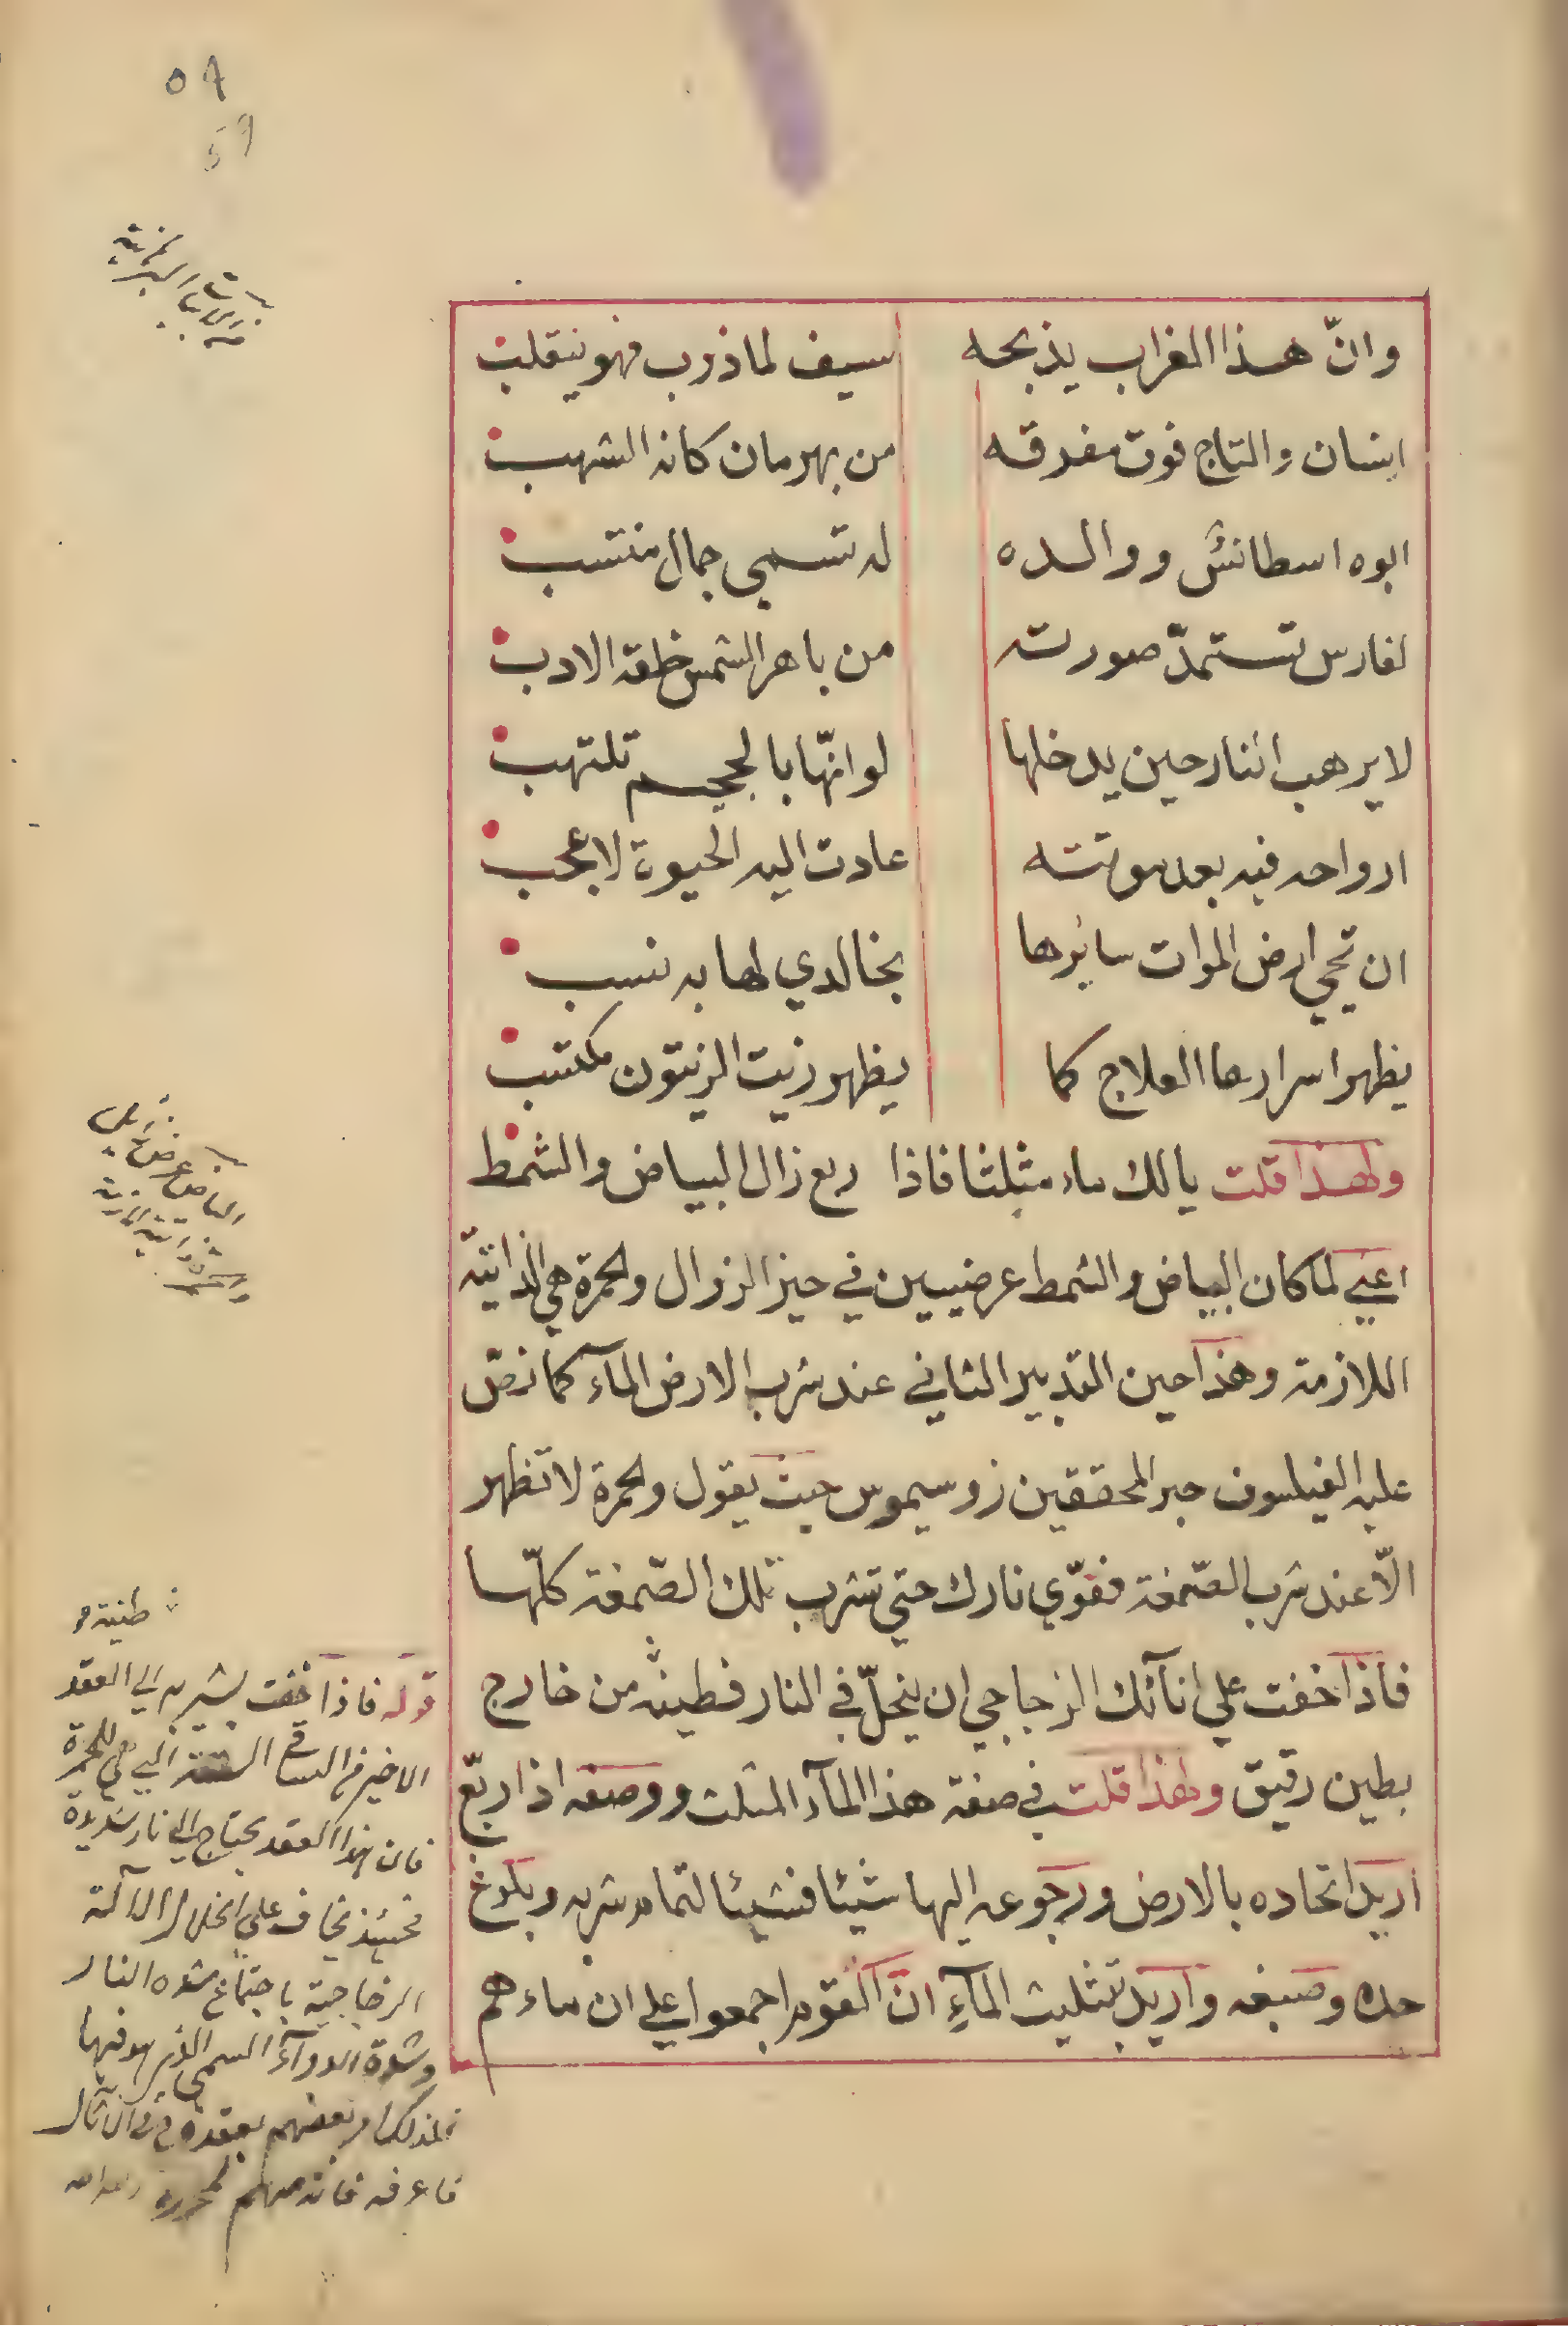 ٥٩
59
وانّ هذا الغراب يذبحه سيف لماذرب فهو ينقلب
انسان والتاج فوق مفرقه من بهرمان كانه الشهب
ابوه اسطانس ووالده له تسمى جمال منتسب
لفارس تستمدّ صورته من باهر الشمس خلقه الادب
لا يرهب النار حين يدخلها لو انّها بالجحيم تلتهب
ارواحه فيه بعد موتته عادت اليه الحيوة لا عجب
ان تحيي ارض الموات سايرها بخالدي لها به نسب
يظهر اسرارها العلاج كما يظهر زيت الزيتون مكتسب
ولهذا قلت يا لك ماء مثلثا فاذا ربع زال البياض والشمط
اعني لما كان البياض والشمط عرضيين في حيز الزوال والحمرة هي الذاتية
اللازمة وهذا حين التدبير الثاني عند شرب الارض المآء كما نصّ
عليه الفيلسوف حبر المحققين زوسيموس حيث يقول والحمرة لا تظهر
الّا عند شرب الصّمغة فقوّي نارك حتي تشرب تلك الصّمغة كلّها
فاذا خفت علي انآئك الزجاجي ان ينحلّ في النار فطينه من خارج
بطين رقيق ولهذا قلت في صفة هذا المآء المثلث ووصفه اذا ربّع
اريد اتحاده بالارض ورجوعه اليها شيئا فشيئا لتمام شربه وبلوغ
حده وصبغه واريد بتثليث المآء انّ القوم اجمعوا علي ان ماءهم
البياض عرضيّ
طينه
قوله فاذا خفت يشير به الي العقد
الاخير في التساقي الستة التي هي للحمرة
فان هذا العقد يحتاج الي نار شديدة
فحينئذ يخاف علي انحلال الالة
الزجاجية باجتماع شدة النار
وشدة الدوآء السمي الذي هو فيها
فلذلك امر بعضهم بعقده في
فاعرفه فانه مهم لمحرره